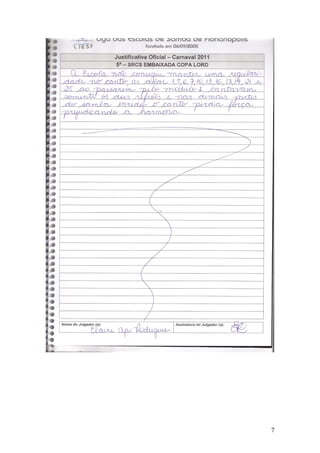 Liga das Escolas de Samba de Florianópolis
Fundada em 06/09/2005
Justificativa Oficial – Carnaval 2011
5ª – SRCS EMBAIXADA COPA LORD
A Escola não conseguiu manter uma regulari-
dade no canto, as alas 1,5,6,7,10,12,16,18,19, 21 e
25 ao passarem pelo módulo 1 cantaram
somente os dois refrões e nas demais partes
do samba enredo o canto perdia força
prejudicando a harmonia.
Nome do Julgador (a):
Assinatura do Julgador (a):
Elaine Ap Rodrigues
7